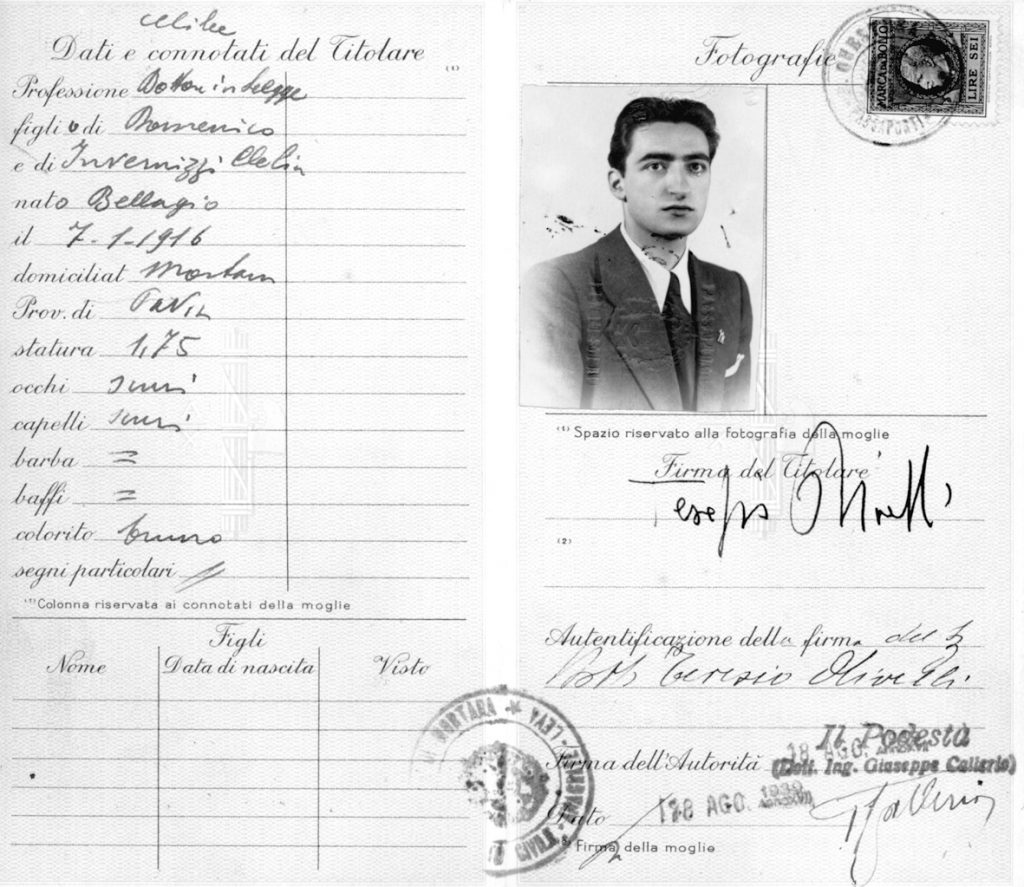 celibe
Dati e connotati del Titolare
(1)
Professione Dottor in Legge
figlio di Domenico
e di Invernizzi Clelia
nato Bellagio
il 7-1-1916
domiciliat Mortara
Prov. di Pavia
statura 1,75
occhi scuri
capelli scuri
barba =
baffi =
colorito bruno
segni particolari //
(1) Colonna riservata ai connotati della moglie
Figli
Nome Data di nascita Visto
MORTARA * LEVA
CIVILE
Fotografie
MARCA DA BOLLO
LIRE SEI
PASSAPORTI
(1) Spazio riservato alla fotografia della moglie
Firma del Titolare
Teresio Olivelli
(2)
Autentificazione della firma del S
Dott. Teresio Olivelli.
Il Podestà
18 AGO.
(Dott. Ing. Giuseppe Callerio)
Firma dell'Autorità
18 AGO. 1939
Callerio
Firma della moglie